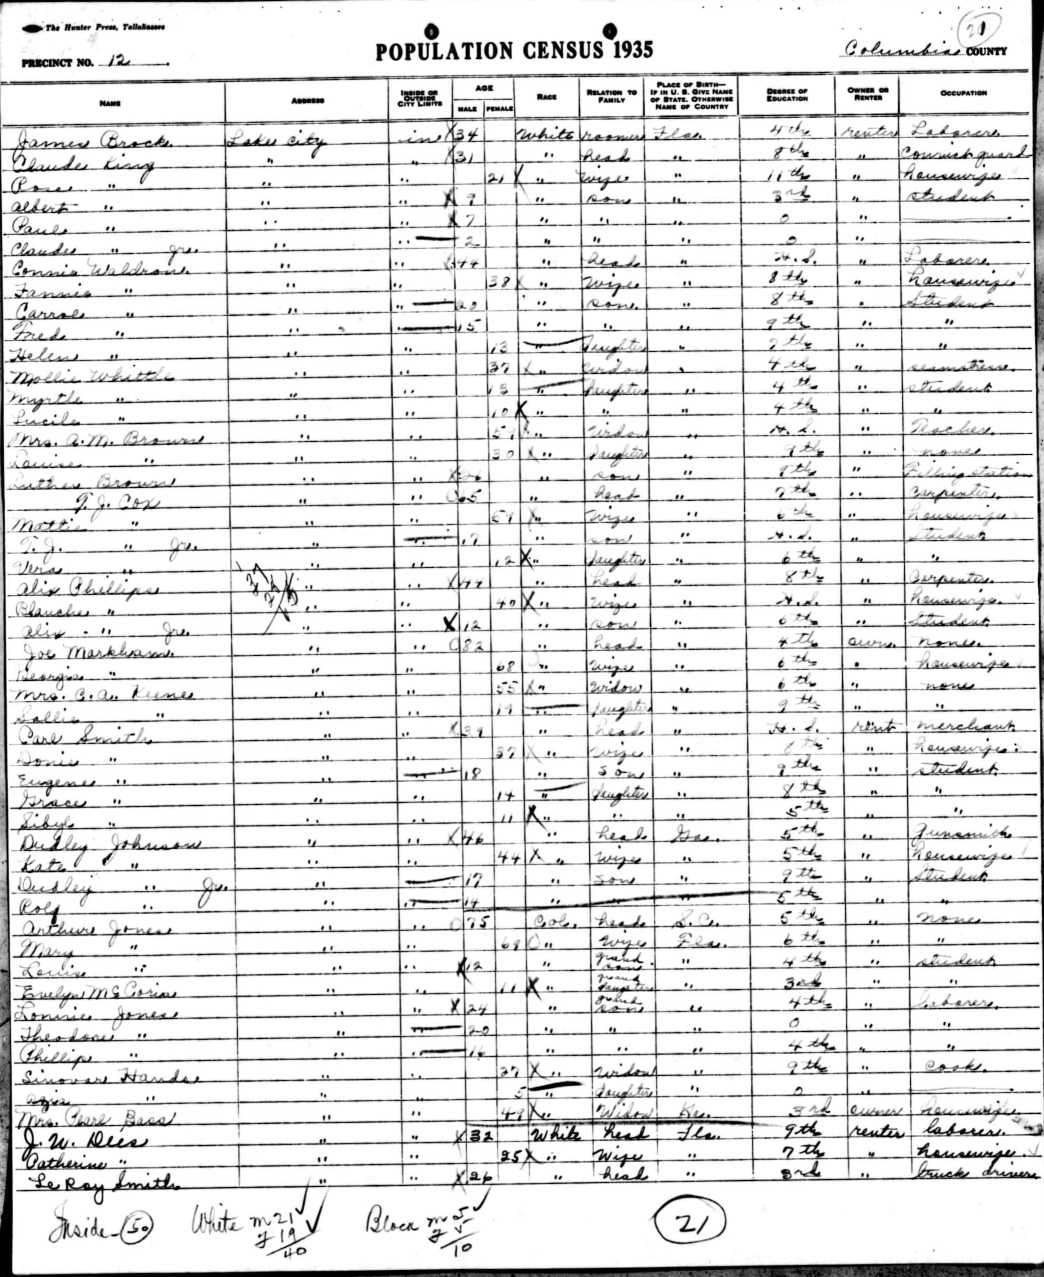 The Hunter Press, Tallahassee
21
POPULATION CENSUS 1935
PRECINCT NO. 12
Columbia COUNTY
NAME ADDRESS INSIDE OR OUTSIDE CITY LIMITS AGE MALE FEMALE RACE RELATION TO FAMILY PLACE OF BIRTH—IF IN U. S. GIVE NAME OF STATE, OTHERWISE NAME OF COUNTRY DEGREE OF EDUCATION OWNER OR RENTER OCCUPATION
James Brock Lake City in X 34 White roomer Fla. 4th renter Laborer
Claude King " " X 31 " head " 8th " Convict guard
Rose " " " 21 X " Wife " 11th " housewife
Albert " " " X 9 " son " 3rd " student
Paul " " " X 7 " " " 0 "
Claude " Jr. " " 2 " " " 0 "
Connie Waldron " " X 44 " head " H.S. " Laborer
Fannie " " " 38 X " Wife " 8th " housewife
Carrol " " " 20 " son " 8th " Student
Fred " " " 15 " " " 9th " "
Helen " " " 13 " daughter " 7th " "
Mollie Whittle " " 37 X " Widow " 4th " seamstress
Myrtle " " " 13 " daughter " 4th " student
Lucile " " " 10 X " " " 4th " "
Mrs. A. M. Brown " " " Widow " H.S. " Teacher
Louise " " " 30 X " daughter " 9th " none
Luther Brown " " X 26 " son " 8th " Filling station
T. J. Cox " " 65 " head " 7th " Carpenter
Mattie " " " 59 X " Wife " 6th " housewife
T. J. " Jr. " " 17 " son " H.S. " Student
Vera " " " 12 X " daughter " 6th " "
Alix Phillips " " X 44 " head " 8th " Carpenter
Blanche " " " 40 X " Wife " H.S. " housewife
Alix " Jr. " " X 12 " son " 6th " Student
Joe Markham " " 82 " head " 4th owner none
Georgia " " " 68 " Wife " 6th " housewife
Mrs. C. A. Keene " " 55 X " Widow " 6th " none
Sallie " " " 19 " daughter " 9th " "
Carl Smith " " X 39 " head " H.S. rent merchant
Donie " " " 37 X " wife " 8th " housewife
Eugene " " " 18 " son " 9th " student
Grace " " " 14 " daughter " 8th " "
Sibyl " " " 11 X " " " 5th "
Dudley Johnson " " X 46 " head Ga. 5th " Gunsmith
Kate " " " 44 X " Wife " 5th " housewife
Dudley " Jr. " " 17 " son " 9th " Student
Rolf " " " 14 " " " 5th " "
Arthur Jones " " 75 Col. head S.C. 5th " none
Mary " " " 69 " Wife Fla. 6th " "
Louis " " " X 12 " grand son " 4th " student
Evelyn McCoria " " 11 X " grand daughter " 3rd " "
Lonnie Jones " " X 24 " grand son " 4th " laborer
Theodore " " " 20 " " " 0 " "
Phillip " " " 16 " " " 4th " "
Sinovar Hands " " 27 X " Widow " 9th " cook
" " " 5 " daughter " 0 "
Mrs. Pearl Bass " " 49 X " Widow " 3rd owner housewife
J. W. Dees " " X 32 White head Fla. 9th renter laborer
Catherine " " " 25 X " Wife " 7th " housewife
Le Roy Smith " " X 26 " head " 3rd " truck driver
Inside - 50 White m 21 Black m 5 21
f 19 f 5
40 10